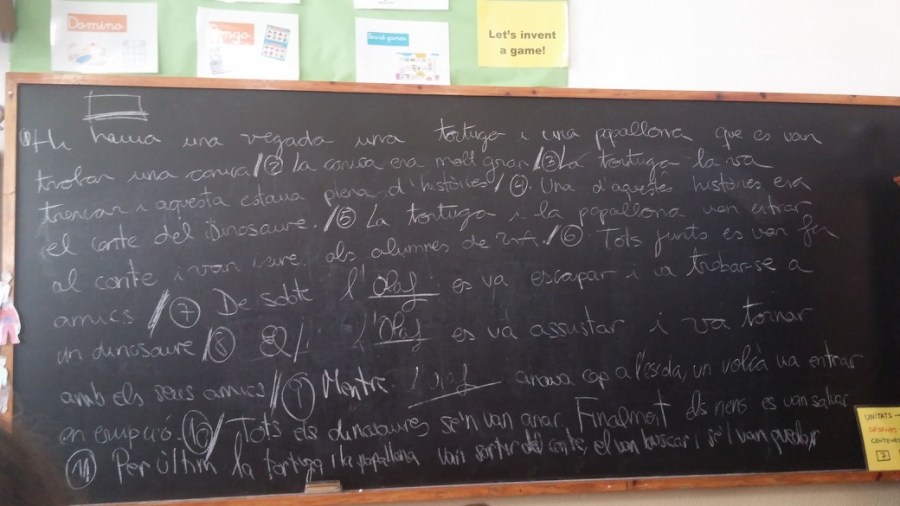 Domino
Bingo
Board games
Let's invent
a game!
Hi havia una vegada una tortuga i una papallona que es van
trobar una conxa / ② La conxa era molt gran / ③ La tortuga la va
trencar i aquesta estava plena d'històries / ④ Una d'aquestes històries era
el conte del Dinosaure. / ⑤ La tortuga i la papallona van entrar
al conte i van veure als alumnes de / ⑥ Tots junts es van fer
amics / ⑦ De sobte l'Olaf es va escapar i va trobar-se a
un dinosaure / ⑧ l'Olaf es va assustar i va tornar
amb els seus amics / Mentre l'Olaf anava cap a l'escola, un volcà va entrar
en erupció ⑩ / Tots els dinosaures se'n van anar. Finalment els nens es van salvar
⑪ Per últim la tortuga i la papallona van sortir del conte, el van buscar i se'l van quedar
UNITATS
DESENES
CENTENES